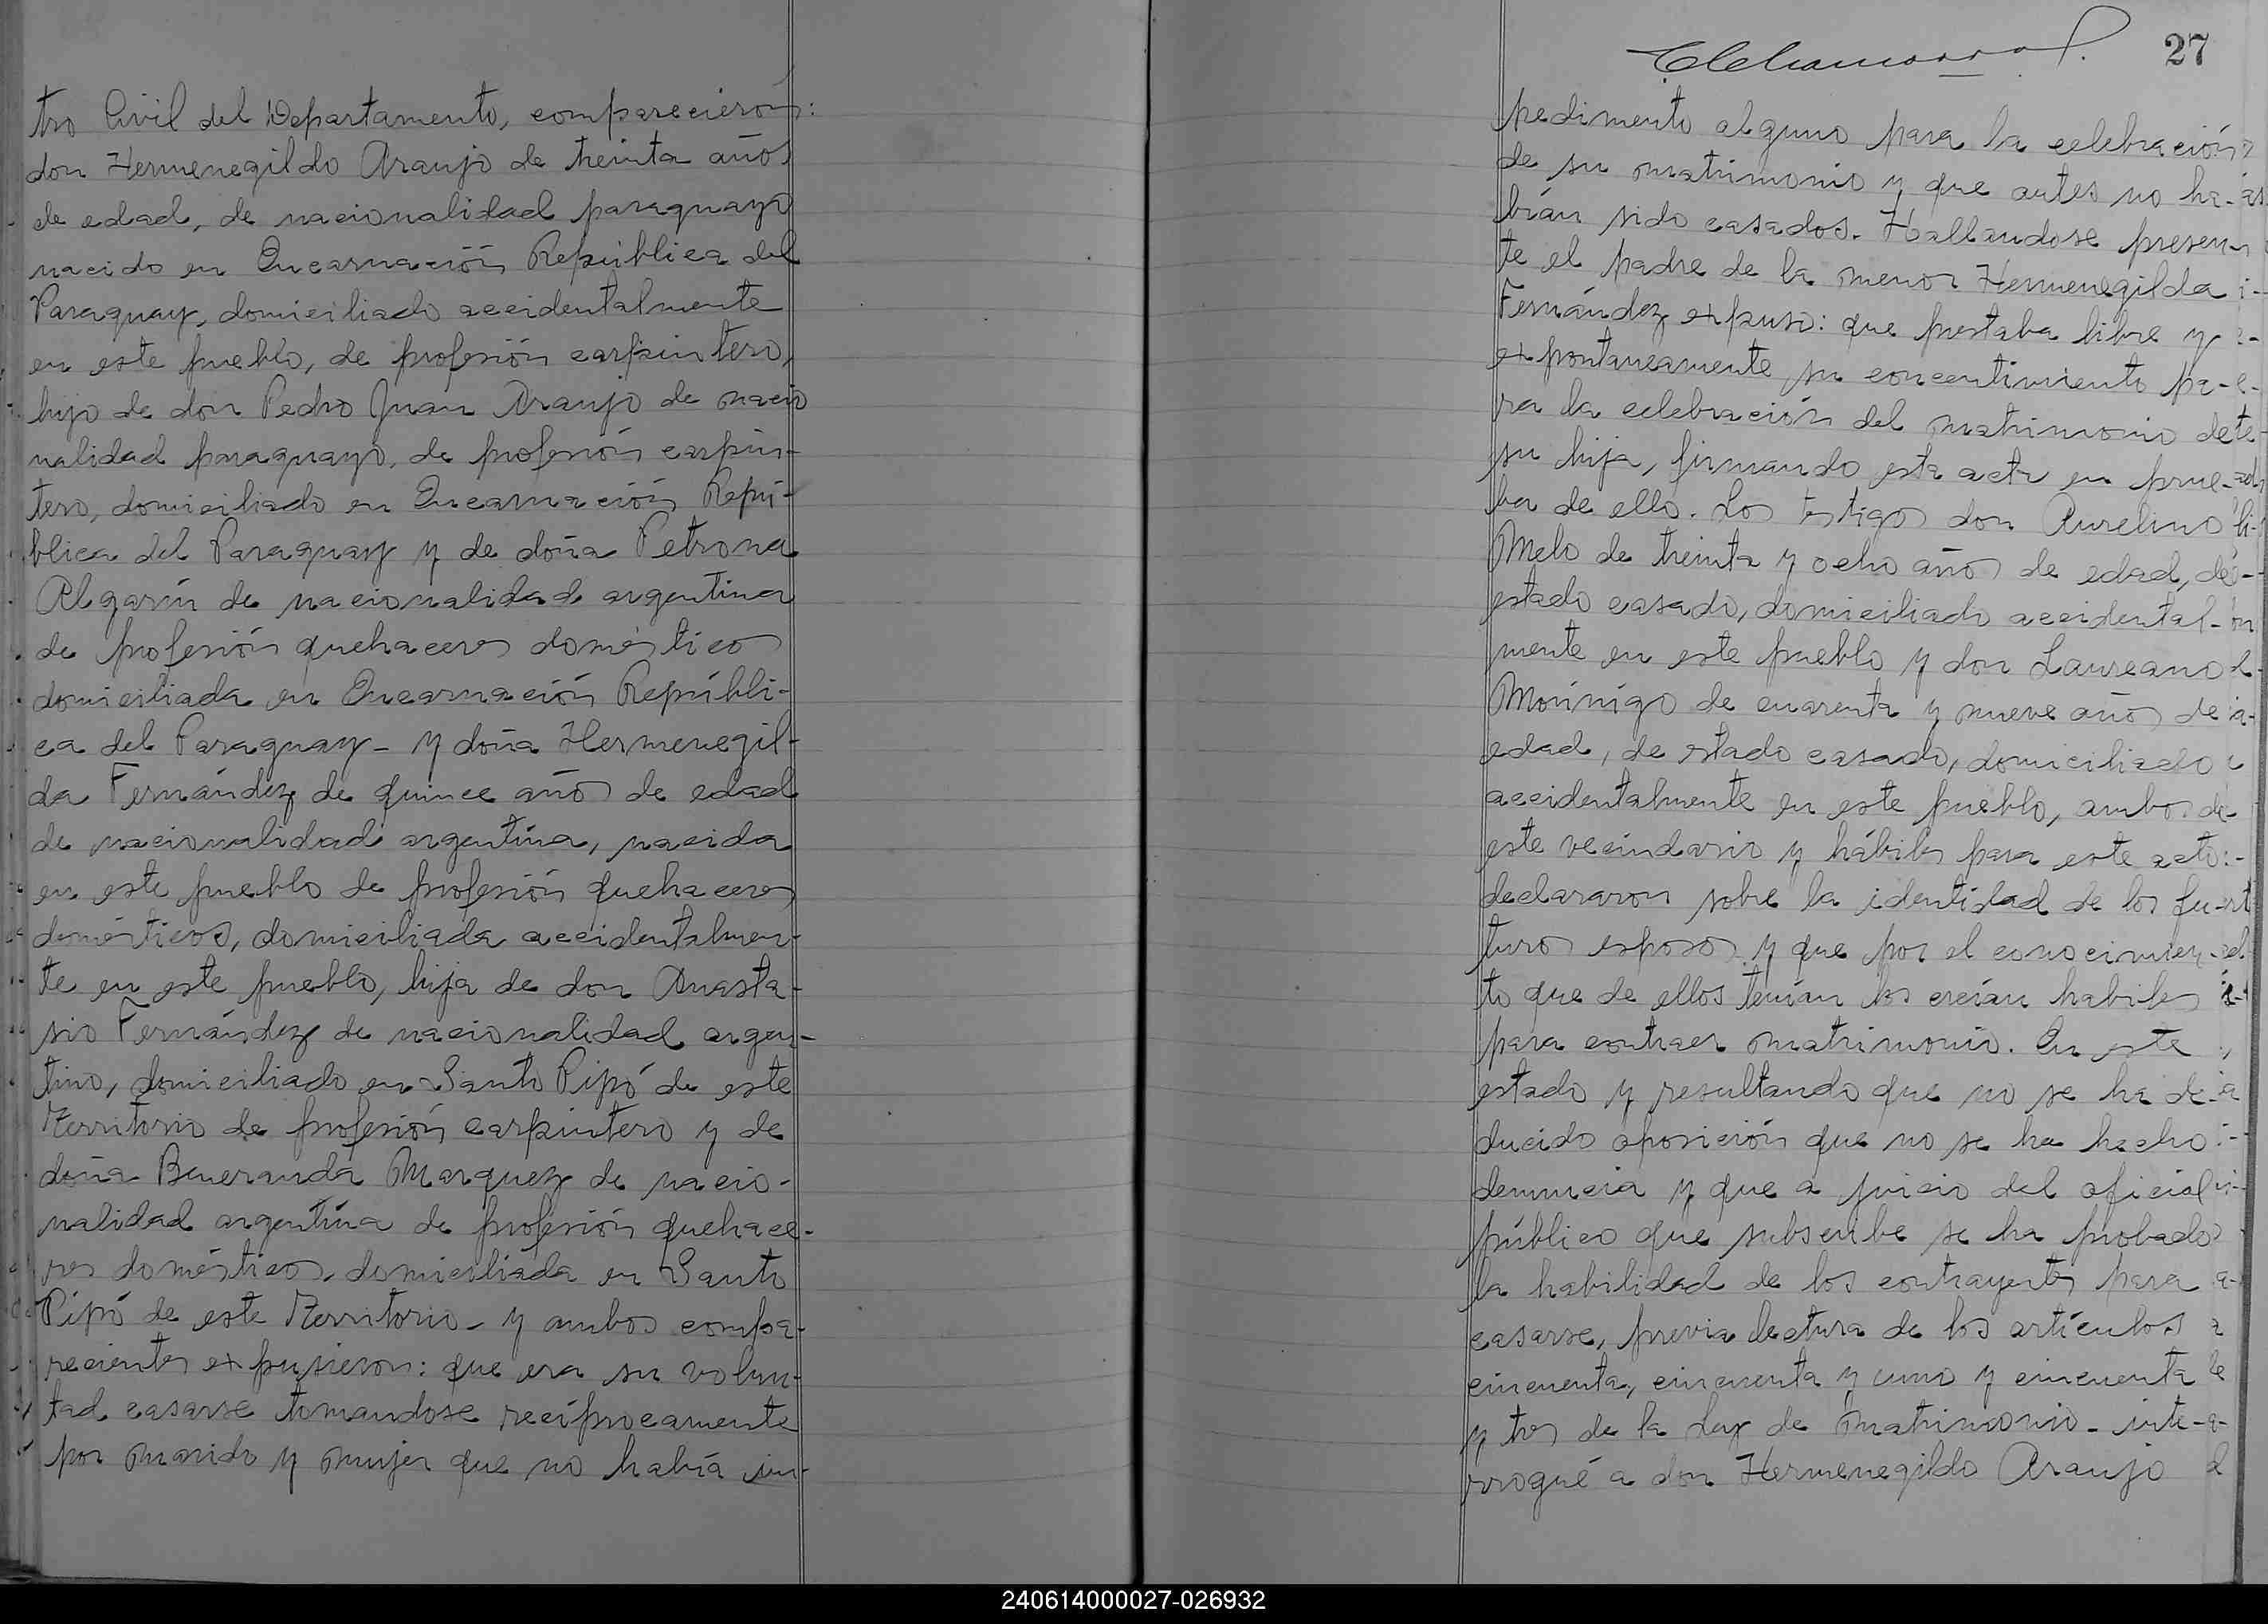 tro Civil del Departamento, comparecieron:
don Hermenegildo Araujo de treinta años
de edad, de nacionalidad paraguaya
nacido en Encarnación República del
Paraguay, domiciliado accidentalmente
en este pueblo, de profesión carpintero,
hijo de don Pedro Juan Araujo de nacio
nalidad paraguayo, de profesión carpin-
tero, domiciliado en Encarnación Repú-
blica del Paraguay y de doña Petrona
Algarín de nacionalidad argentina
de profesión quehaceres domésticos
domiciliada en Encarnación Repúbli-
ca del Paraguay - y doña Hermenegil-
da Fernández de quince años de edad
de nacionalidad argentina, nacida
en este pueblo de profesión quehaceres
domésticos, domiciliada accidentalmen-
te en este pueblo, hija de don Anasta-
sio Fernández de nacionalidad argen-
tino, domiciliado en Santo Pipó de este
Territorio de profesión carpintero y de
doña Beneranda Marquez de nacio-
nalidad argentina de profesión quehace-
res domésticos, domiciliada en Santo
Pipó de este Territorio - y ambos compa-
recientes expusieron: que era su volun-
tad casarse tomandose recíprocamente
por marido y mujer que no había im-
27
pedimento alguno para la celebración
de su matrimonio y que antes no ha-
bían sido casados. Hallandose presen
te el padre de la menor Hermenegilda
Fernández expuso: que prestaba libre y
expontaneamente su concentimiento pa-
ra la celebración del matrimonio de
su hija, firmando esta acta en prue-
ba de ello. Los testigos don Aurelino
Melo de treinta y ocho años de edad, de
estado casado, domiciliado accidental-
mente en este pueblo y don Laureano
Morínigo de cuarenta y nueve años de
edad, de estado casado, domiciliado
accidentalmente en este pueblo, ambos de
este vecindario y hábiles para este acto:-
declararon sobre la identidad de los fu-
turos esposos y que por el conocimien-
to que de ellos tenían los creían habiles
para contraer matrimonio. En este
estado y resultando que no se ha de-
ducido oposición que no se ha hecho
denuncia y que a juicio del oficial
público que subscribe se ha probado
la habilidad de los contrayentes para
casarse, previa lectura de los artículos
cincuenta, cincuenta y uno y cincuenta
y tres de la Ley de matrimonio - inte-
rrogué a don Hermenegildo Araujo
240614000027-026932